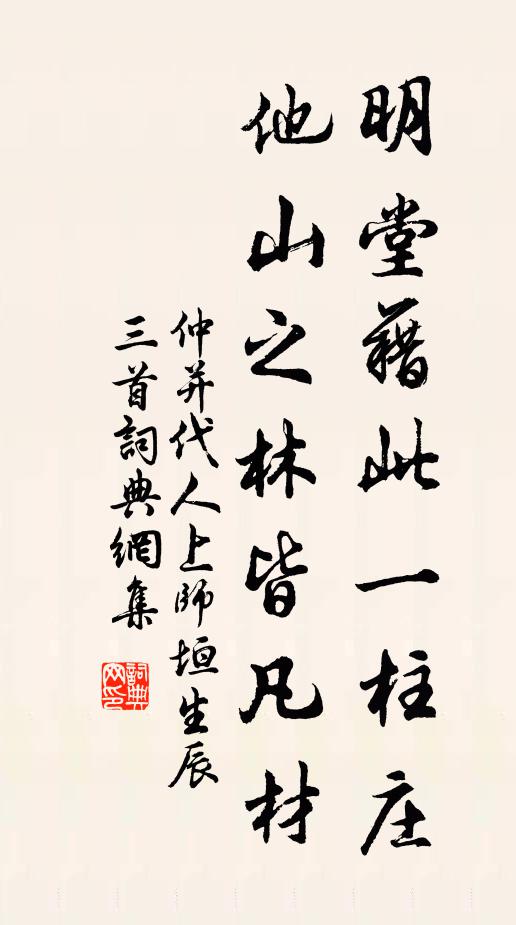 明堂藉此一柱庄
他山之林皆凡材
仲并代人上師垣生辰
三首詞典網集
詞典网印